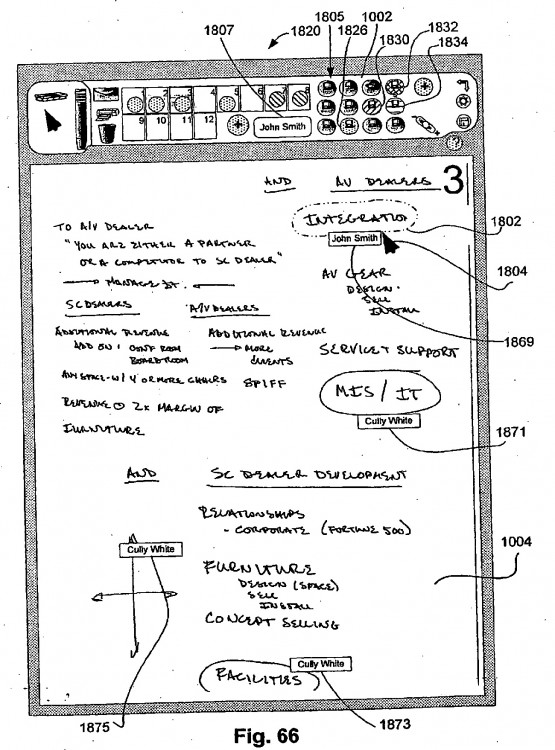 1805 1002 1832
1807 1820 1826 1830 1834
2 3 4 5 6
9 10 11 12
John Smith
?
AND AV DEALERS 3
INTEGRATION
1802
John Smith
1804
TO A/V DEALER
"YOU ARE EITHER A PARTNER
OR A COMPETITOR TO SC DEALER"
MANAGE IT.
AV GEAR
DESIGN
SELL
INSTALL
1869
SC DEALERS A/V DEALERS
ADDITIONAL REVENUE ADDITIONAL REVENUE
ADD ON: CONF ROOM MORE
BOARDROOM CLIENTS
SERVICE + SUPPORT
ANY SPACE - W/ 4 OR MORE CHAIRS SPIFF
MIS / IT
REVENUE 2X MARGIN OF
FURNITURE
Cully White
1871
AND SC DEALER DEVELOPMENT
RELATIONSHIPS
- CORPORATE (FORTUNE 500)
Cully White
1004
FURNITURE
DESIGN (SPACE)
SELL
INSTALL
CONCEPT SELLING
Cully White
FACILITIES
1875 1873
Fig. 66